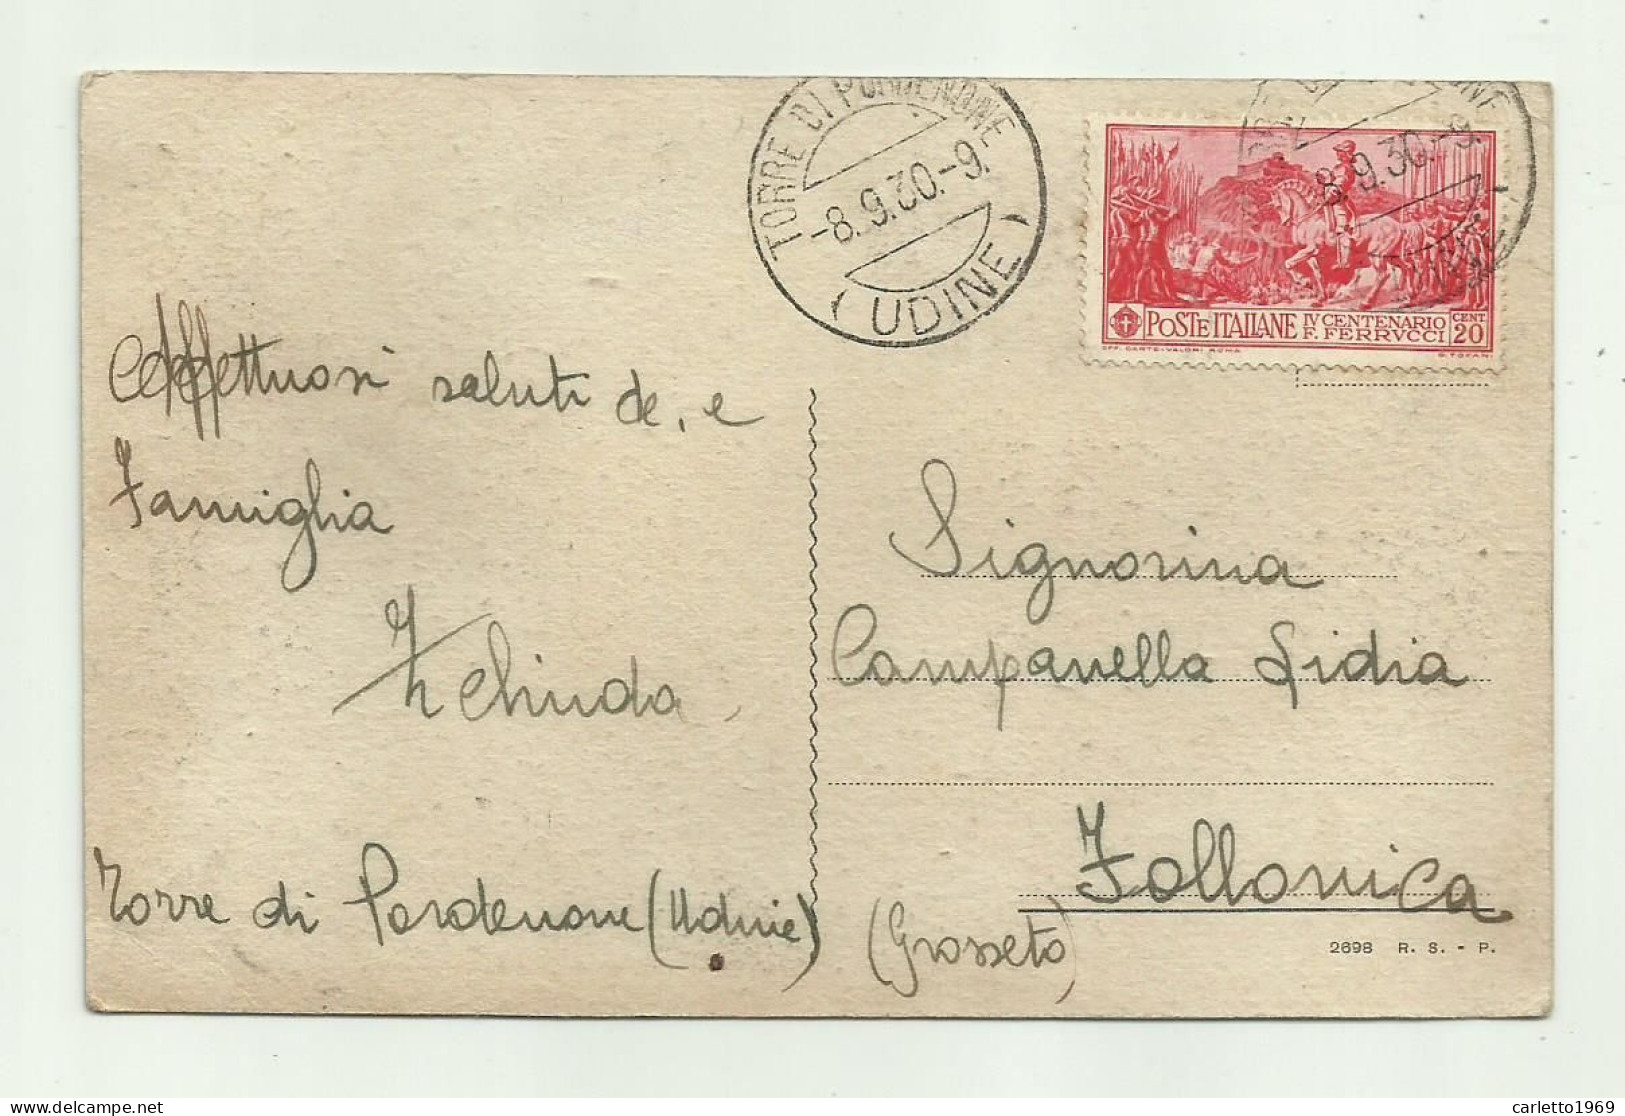 TORRE DI PORDENONE
-8.9.30.-9.
(UDINE)
8.9.30.-9.
POSTE ITALIANE IV CENTENARIO F. FERRVCCI CENT 20
OFF. CARTE-VALORI ROMA
Affettuosi saluti te, e
Famiglia
Torre di Pordenone (Udine)
Signorina
Campanella Lidia
Follonica
(Grosseto)
2698 R. S. - P.
delcampe.net
carletto1969